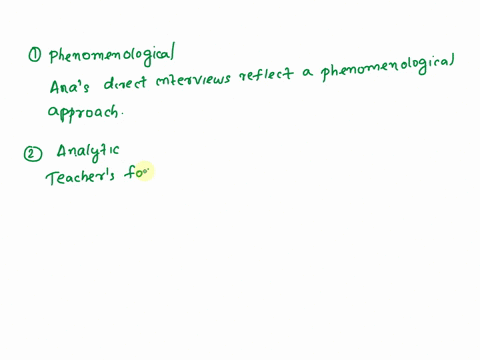 ① Phenomenological
Ana's direct interviews reflect a phenomenological
approach.
② Analytic
Teacher's